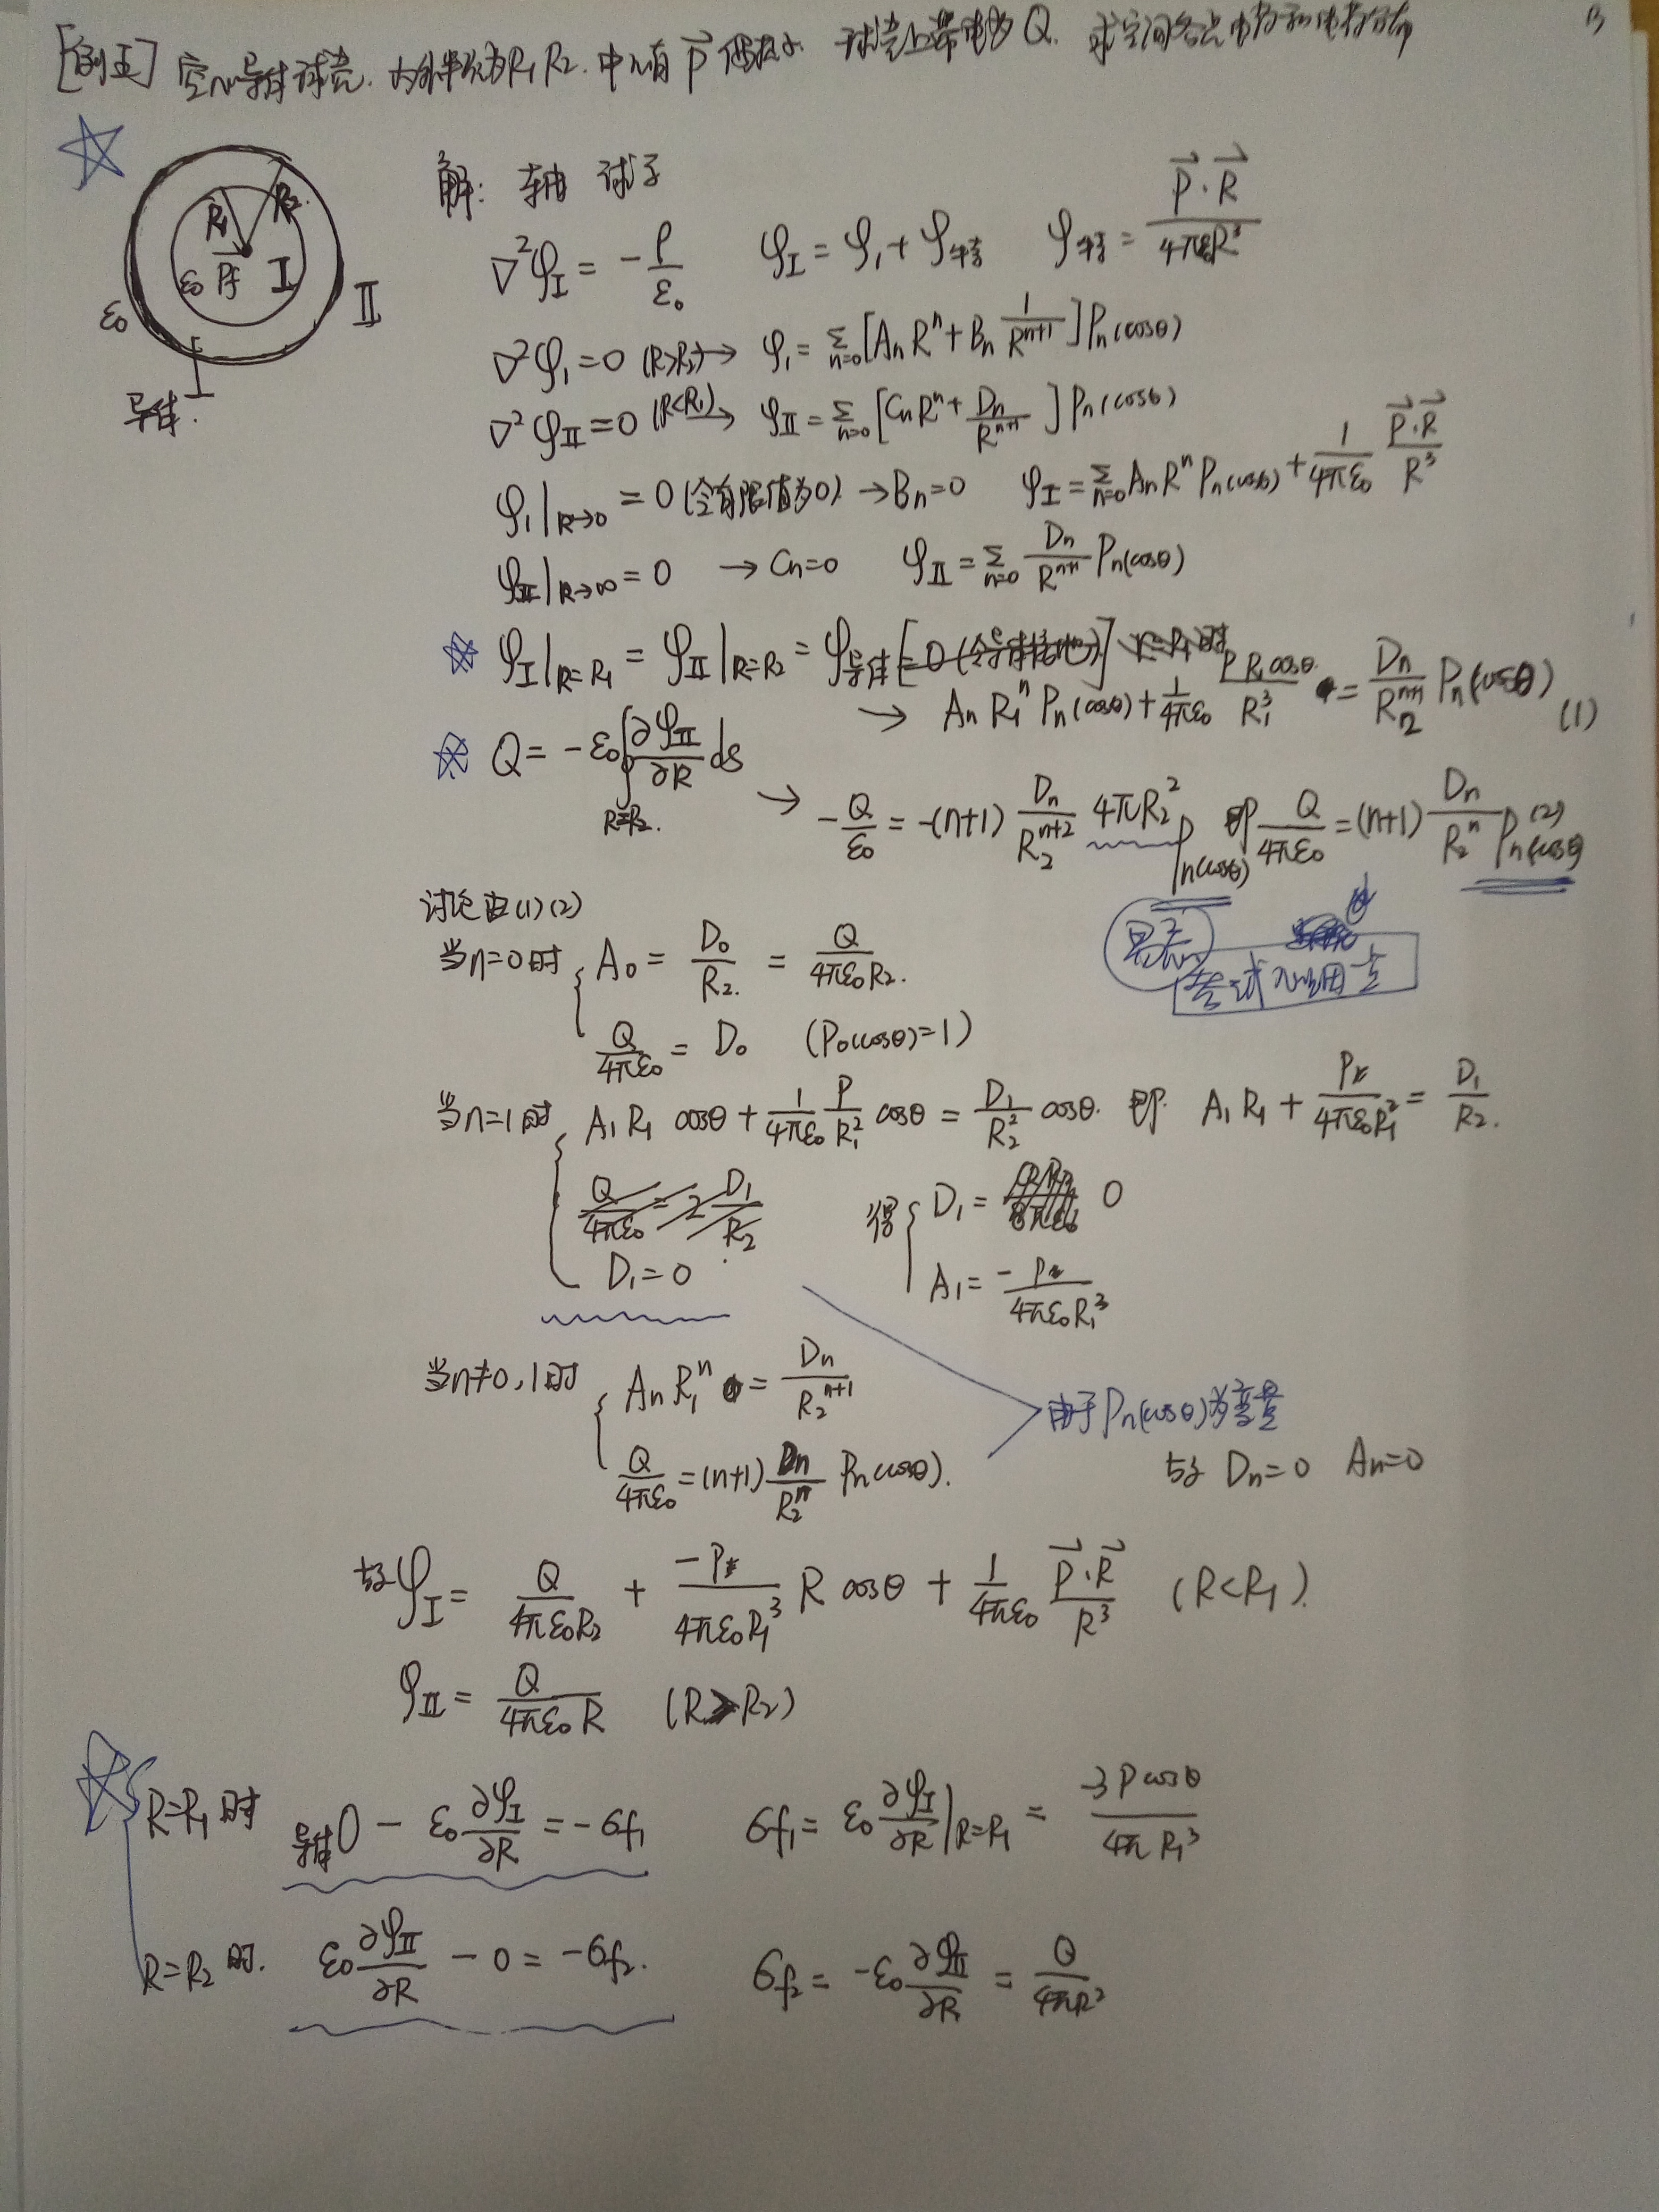 [例五] 空心导体球壳. 内外半径为R₁ R₂. 中心有 P⃗ 偶极子. 球壳上带电为Q. 求空间各点电势和电荷分布
R₁ R₂
ε₀ Pf I II
ε₀
导体.
解: 轴 球对
∇²φ_I = -ρ/ε₀ φ_I = φ₁ + φ_特 φ_特 = P⃗·R⃗/4πε₀R³
∇²φ₁ = 0 (R>R₂) → φ₁ = Σ_{n=0} [AₙRⁿ + Bₙ 1/Rⁿ⁺¹] Pₙ(cosθ)
∇²φ_II = 0 (R<R₁) → φ_II = Σ_{n=0} [CₙRⁿ + Dₙ/Rⁿ⁺¹] Pₙ(cosθ)
φ₁|R→0 = 0 (令有限值为0) → Bₙ=0 φ_I = Σ_{n=0} AₙRⁿPₙ(cosθ) + 1/4πε₀ P⃗·R⃗/R³
φ_II|R→∞ = 0 → Cₙ=0 φ_II = Σ_{n=0} Dₙ/Rⁿ⁺¹ Pₙ(cosθ)
φ_I|R=R₁ = φ_II|R=R₂ = φ导体 [=0 (令导体接地)]
→ AₙR₁ⁿPₙ(cosθ) + 1/4πε₀ PR₁cosθ/R₁³ = Dₙ/R₂ⁿ⁺¹ Pₙ(cosθ) (1)
Q = -ε₀∮_{R=R₂} ∂φ_II/∂R ds
→ -Q/ε₀ = -(n+1) Dₙ/R₂ⁿ⁺² 4πR₂² Pₙ(cosθ) 即 Q/4πε₀ = (n+1) Dₙ/R₂ⁿ Pₙ(cosθ) (2)
讨论 由(1)(2)
当n=0时 { A₀ = D₀/R₂. = Q/4πε₀R₂.
Q/4πε₀ = D₀ (P₀(cosθ)=1)
当n=1时 { A₁R₁ cosθ + 1/4πε₀ P/R₁² cosθ = D₁/R₂² cosθ. 即. A₁R₁ + P/4πε₀R₁² = D₁/R₂.
Q/4πε₀ = 2 D₁/R₂
D₁=0
得 { D₁ = 0
A₁ = -P/4πε₀R₁³
当n≠0,1时 { AₙR₁ⁿ = Dₙ/R₂ⁿ⁺¹
Q/4πε₀ = (n+1) Dₙ/R₂ⁿ Pₙ(cosθ).
由于Pₙ(cosθ)为变量
故 Dₙ=0 Aₙ=0
故φ_I = Q/4πε₀R₂ + -P/4πε₀R₁³ R cosθ + 1/4πε₀ P⃗·R⃗/R³ (R<R₁).
φ_II = Q/4πε₀R (R>R₂)
R=R₁时 导体 0 - ε₀ ∂φ_I/∂R = -σf₁ σf₁ = ε₀ ∂φ_I/∂R|R=R₁ = -3Pcosθ/4πR₁³
R=R₂时. ε₀ ∂φ_II/∂R - 0 = -σf₂. σf₂ = -ε₀ ∂φ_II/∂R = Q/4πR²